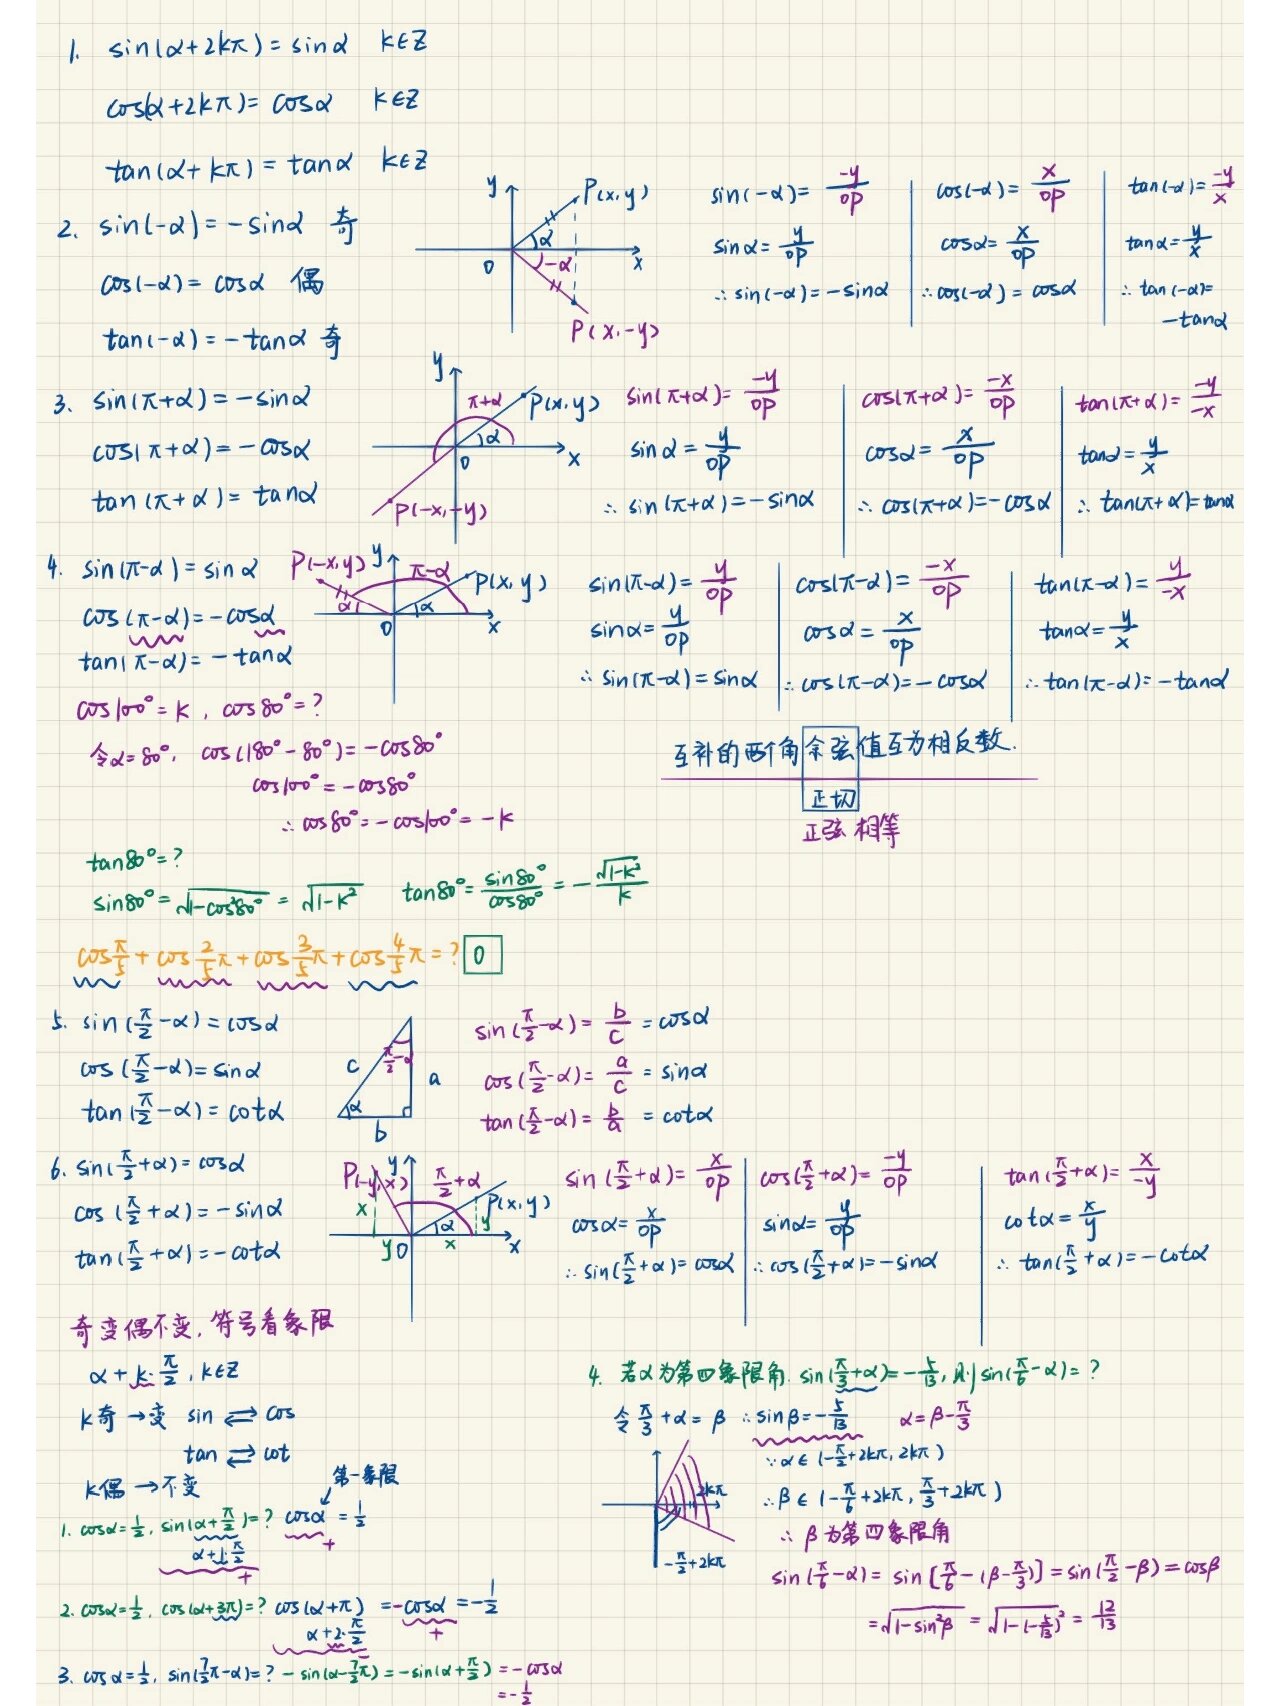 1. sin(α+2kπ)=sinα k∈Z
cos(α+2kπ)=cosα k∈Z
tan(α+kπ)=tanα k∈Z
2. sin(-α)=-sinα 奇
cos(-α)=cosα 偶
tan(-α)=-tanα 奇
y P(x,y) α -α 0 x P(x,-y)
sin(-α)=-y/OP cos(-α)=x/OP tan(-α)=-y/x
sinα=y/OP cosα=x/OP tanα=y/x
∴sin(-α)=-sinα ∴cos(-α)=cosα ∴tan(-α)=
-tanα
3. sin(π+α)=-sinα
cos(π+α)=-cosα
tan(π+α)=tanα
y π+α P(x,y) α 0 x P(-x,-y)
sin(π+α)=-y/OP cos(π+α)=-x/OP tan(π+α)=-y/-x
sinα=y/OP cosα=x/OP tanα=y/x
∴sin(π+α)=-sinα ∴cos(π+α)=-cosα ∴tan(π+α)=tanα
4. sin(π-α)=sinα
cos(π-α)=-cosα
tan(π-α)=-tanα
P(-x,y) y π-α P(x,y) α α 0 x
sin(π-α)=y/OP cos(π-α)=-x/OP tan(π-α)=y/-x
sinα=y/OP cosα=x/OP tanα=y/x
∴sin(π-α)=sinα ∴cos(π-α)=-cosα ∴tan(π-α)=-tanα
cos100°=k, cos80°=?
令α=80°, cos(180°-80°)=-cos80°
cos100°=-cos80°
∴cos80°=-cos100°=-k
互补的两个角余弦值互为相反数.
正切
正弦相等
tan80°=?
sin80°=√(1-cos²80°)=√(1-k²) tan80°=sin80°/cos80°=-√(1-k²)/k
cosπ/5+cos2/5π+cos3/5π+cos4/5π=? 0
5. sin(π/2-α)=cosα
cos(π/2-α)=sinα
tan(π/2-α)=cotα
c π/2-α a α b
sin(π/2-α)=b/c=cosα
cos(π/2-α)=a/c=sinα
tan(π/2-α)=b/a=cotα
6. sin(π/2+α)=cosα
cos(π/2+α)=-sinα
tan(π/2+α)=-cotα
P(-y,x) y π/2+α P(x,y) x α y y 0 x x
sin(π/2+α)=x/OP cos(π/2+α)=-y/OP tan(π/2+α)=x/-y
cosα=x/OP sinα=y/OP cotα=x/y
∴sin(π/2+α)=cosα ∴cos(π/2+α)=-sinα ∴tan(π/2+α)=-cotα
奇变偶不变,符号看象限
α+k·π/2, k∈Z
k奇→变 sin⇄cos
tan⇄cot
k偶→不变
第一象限
1. cosα=1/2, sin(α+π/2)=? cosα=1/2
α+1·π/2 +
+
2. cosα=1/2, cos(α+3π)=? cos(α+π)=-cosα=-1/2
α+2·π/2 +
-
3. cosα=1/2, sin(7/2π-α)=? -sin(α-7/2π)=-sin(α+π/2)=-cosα
=-1/2
4. 若α为第四象限角. sin(π/3+α)=-5/13, 则sin(π/6-α)=?
令π/3+α=β ∴sinβ=-5/13 α=β-π/3
∵α∈(-π/2+2kπ, 2kπ)
∴β∈(-π/6+2kπ, π/3+2kπ)
∴β为第四象限角
2kπ
-π/2+2kπ
sin(π/6-α)=sin[π/6-(β-π/3)]=sin(π/2-β)=cosβ
=√(1-sin²β)=√(1-(-5/13)²)=12/13